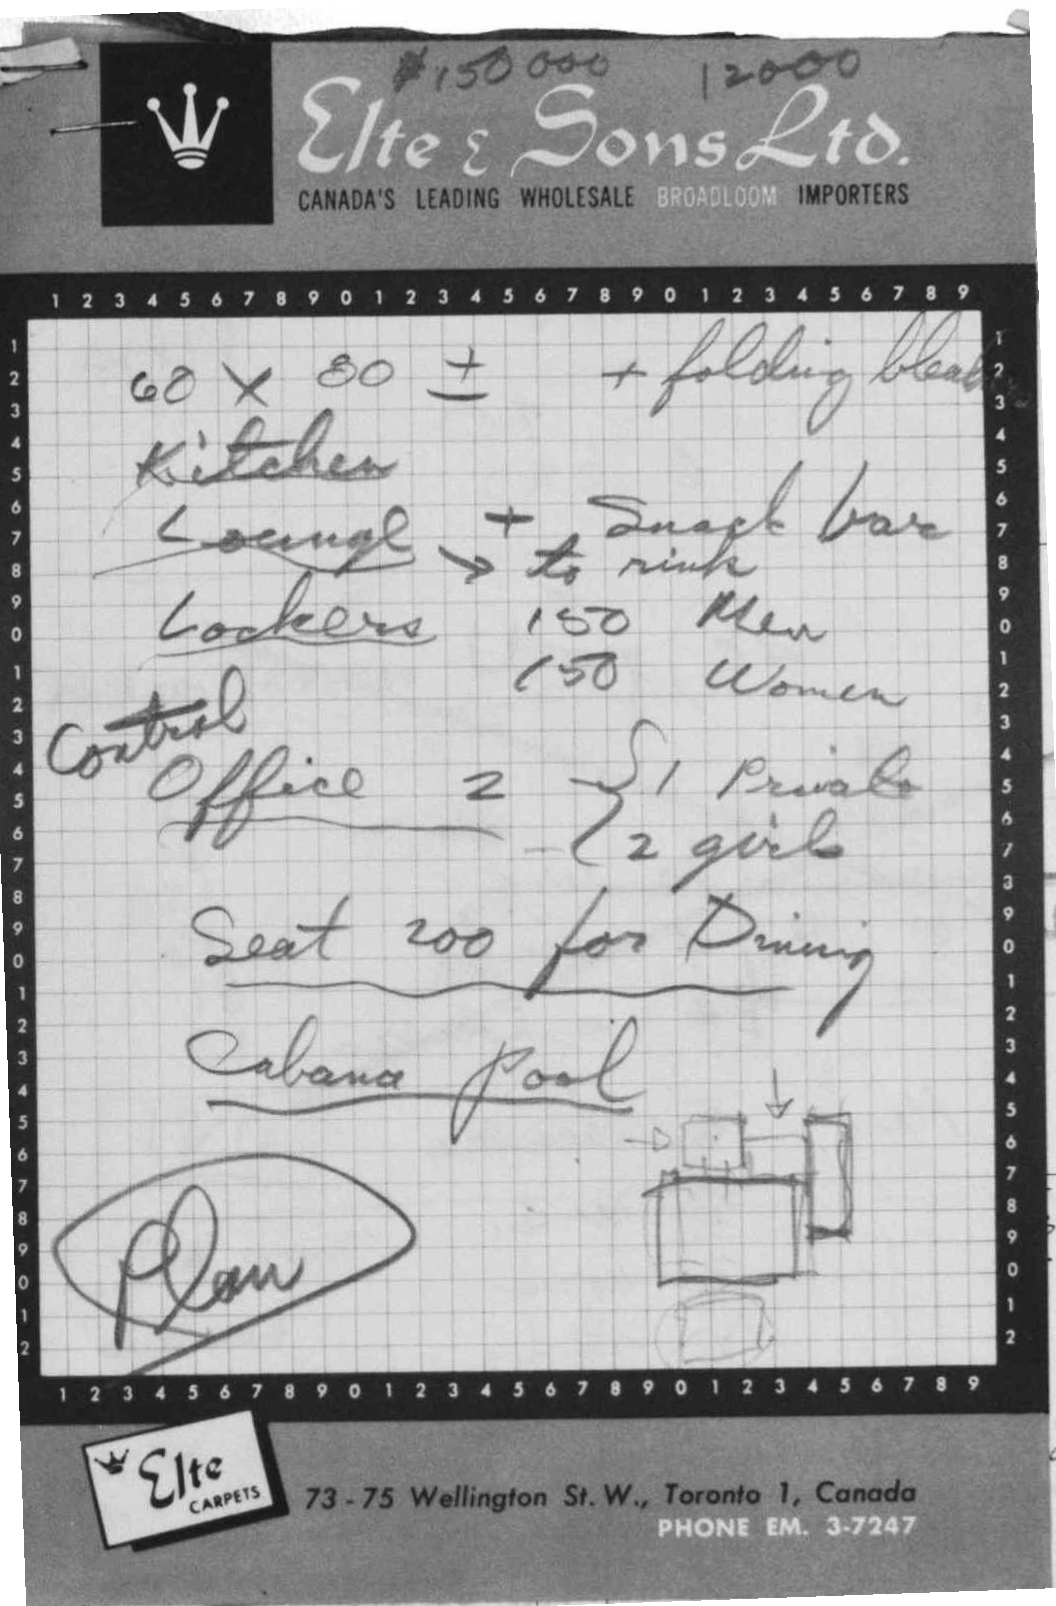 $150 000 12000
Elte & Sons Ltd.
CANADA'S LEADING WHOLESALE BROADLOOM IMPORTERS
1 2 3 4 5 6 7 8 9 0 1 2 3 4 5 6 7 8 9 0 1 2 3 4 5 6 7 8 9
60 X 80 ± + folding
Kitchen
Lounge + Snack bar
→ to rink
Lockers 150 Men
150 Women
Control
Office 2 { 1 Private
2 girls
Seat 200 for Dining
Cabana Pool
Plan
1 2 3 4 5 6 7 8 9 0 1 2 3 4 5 6 7 8 9 0 1 2 3 4 5 6 7 8 9
Elte
CARPETS
73-75 Wellington St. W., Toronto 1, Canada
PHONE EM. 3-7247